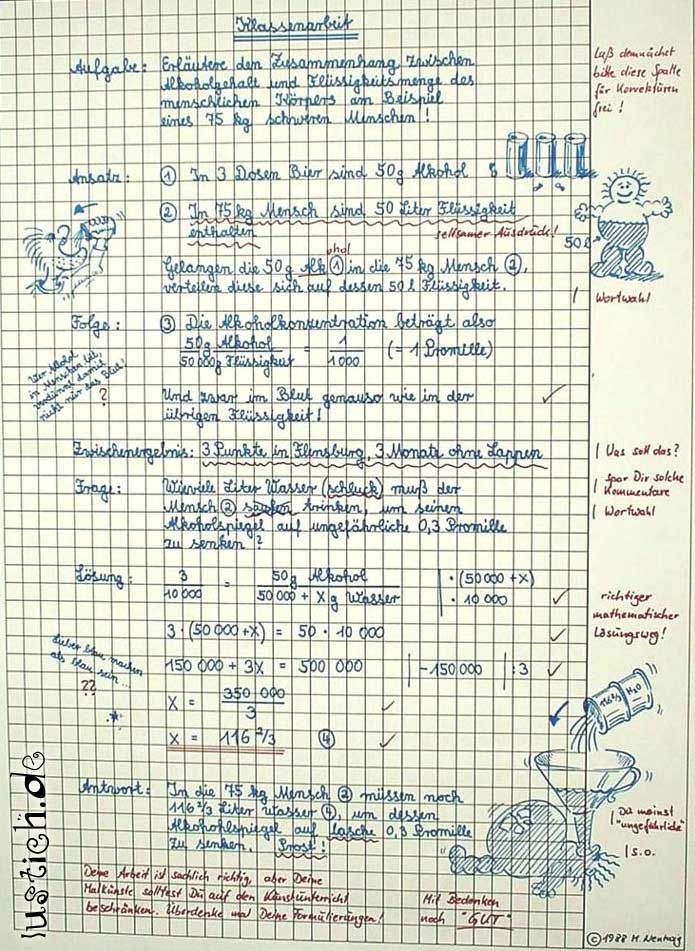 Klassenarbeit
Aufgabe: Erläutere den Zusammenhang zwischen
Alkoholgehalt und Flüssigkeitsmenge des
menschlichen Körpers am Beispiel
eines 75 kg schweren Menschen!
Laß demnächst
bitte diese Spalte
für Korrekturen
frei!
Ansatz: ① In 3 Dosen Bier sind 50g Alkohol
② In 75kg Mensch sind 50 Liter Flüssigkeit
enthalten
seltsamer Ausdruck!
50 l
Gelangen die 50g Alk ① in die 75 kg Mensch ②,
ohol
verteilen diese sich auf dessen 50 l Flüssigkeit.
| Wortwahl
Folge: ③ Die Alkoholkonzentration beträgt also
50g Alkohol / 50000g Flüssigkeit = 1 / 1000 (= 1 Promille)
Wer Alkohol
in Menschen tut,
verdünnt damit
nicht nur das Blut!
?
Und zwar im Blut genauso wie in der
übrigen Flüssigkeit! ✓
Zwischenergebnis: 3 Punkte in Flensburg, 3 Monate ohne Lappen
| Was soll das?
Frage: Wieviele Liter Wasser (schluck) muß der
Mensch ② saufen trinken, um seinen
Alkoholspiegel auf ungefährliche 0,3 Promille
zu senken?
| Spar Dir solche
Kommentare
| Wortwahl
Lösung: 3 / 10000 = 50g Alkohol / 50000 + X g Wasser | · (50000 + X) · 10000 ✓
richtiger
mathematischer
Lösungsweg!
3 · (50000 + X) = 50 · 10000 ✓
150 000 + 3X = 500 000 | -150000 | :3 ✓
Lieber blau machen
als blau sein ...
??
X = 350 000 / 3 ✓
X = 116 2/3 ④ ✓
116 2/3 H₂O
Antwort: In die 75 kg Mensch ② müssen noch
116 2/3 Liter Wasser ④, um dessen
Alkohohlspiegel auf lasche 0,3 Promille
zu senken. Prost!
| Du meinst
"ungefährliche"
| s.o.
Deine Arbeit ist sachlich richtig, aber Deine
Malkünste solltest Du auf den Kunstunterricht
beschränken. Überdenke mal Deine Formulierungen!
Mit Bedenken
noch "GUT"
lustich.de
© 1988 M.